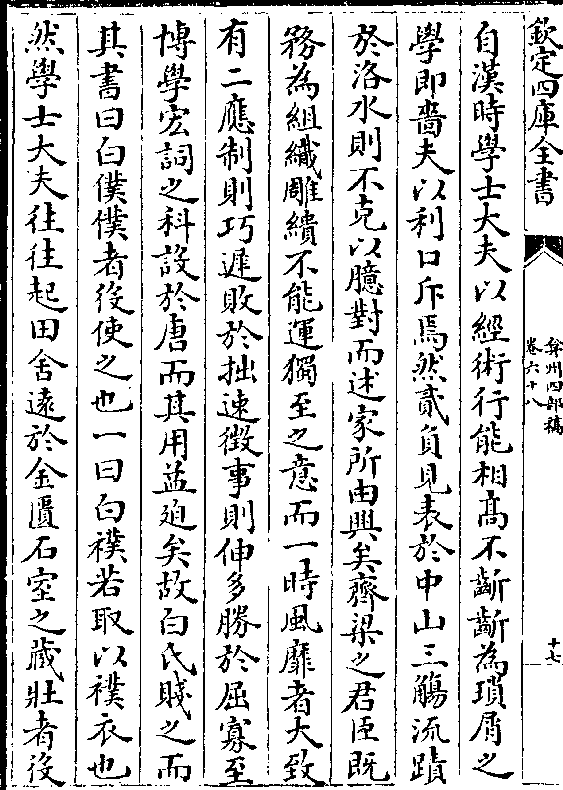 欽定四庫全書
弇州四部稿
卷六十八
十七
自漢時學士大夫以經術行能相高不齗齗為瑣屑之
學即嗇夫以利口斥焉然貳負見表於中山三觴流蹟
於洛水則不克以臆對而述家所由興矣齊梁之君臣既
務為組織雕繢不能運獨至之意而一時風靡者大致
有二應制則巧遲敗於拙速徵事則伸多勝於屈寡至
博學宏詞之科設於唐而其用益迫矣故白氏賤之而
其書曰白僕僕者役使之也一曰白襆若取以襆衣也
然學士大夫往往起田舍遠於金匱石室之藏壯者役